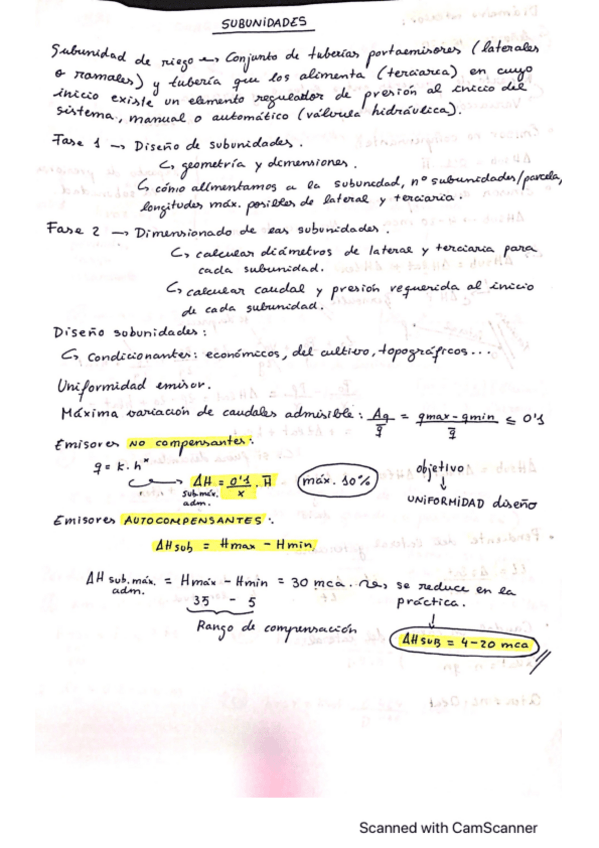 SUBUNIDADES
Subunidad de riego → Conjunto de tuberías portaemisores (laterales
o ramales) y tubería que los alimenta (terciarea) en cuyo
inicio existe un elemento regulador de presión al inicio del
sistema, manual o automático (válvula hidráulica).
Fase 1 → Diseño de subunidades.
↳ geometría y dimensiones.
↳ cómo alimentamos a la subunidad, nº subunidades/parcela,
longitudes máx. posibles de lateral y terciaria.
Fase 2 → Dimensionado de las subunidades.
↳ calcular diámetros de lateral y terciaria para
cada subunidad.
↳ calcular caudal y presión requerida al inicio
de cada subunidad.
Diseño subunidades:
↳ Condicionantes: económicos, del cultivo, topográficos...
Uniformidad emisor.
Máxima variación de caudales admisible: Δq/q̅ = (qmax - qmin)/q̅ ≤ 0'1
Emisores NO compensantes:
q = k.h^x
→ ΔH sub máx. adm. = 0'1/x . H̅ (máx. 10%)
objetivo
↓
UNIFORMIDAD diseño
Emisores AUTOCOMPENSANTES:
ΔHsub = Hmax - Hmin
ΔH sub. máx. adm. = Hmáx - Hmin = 30 mca. → se reduce en la
práctica.
35 - 5
Rango de compensación
↓
ΔHsub = 4-20 mca
Scanned with CamScanner